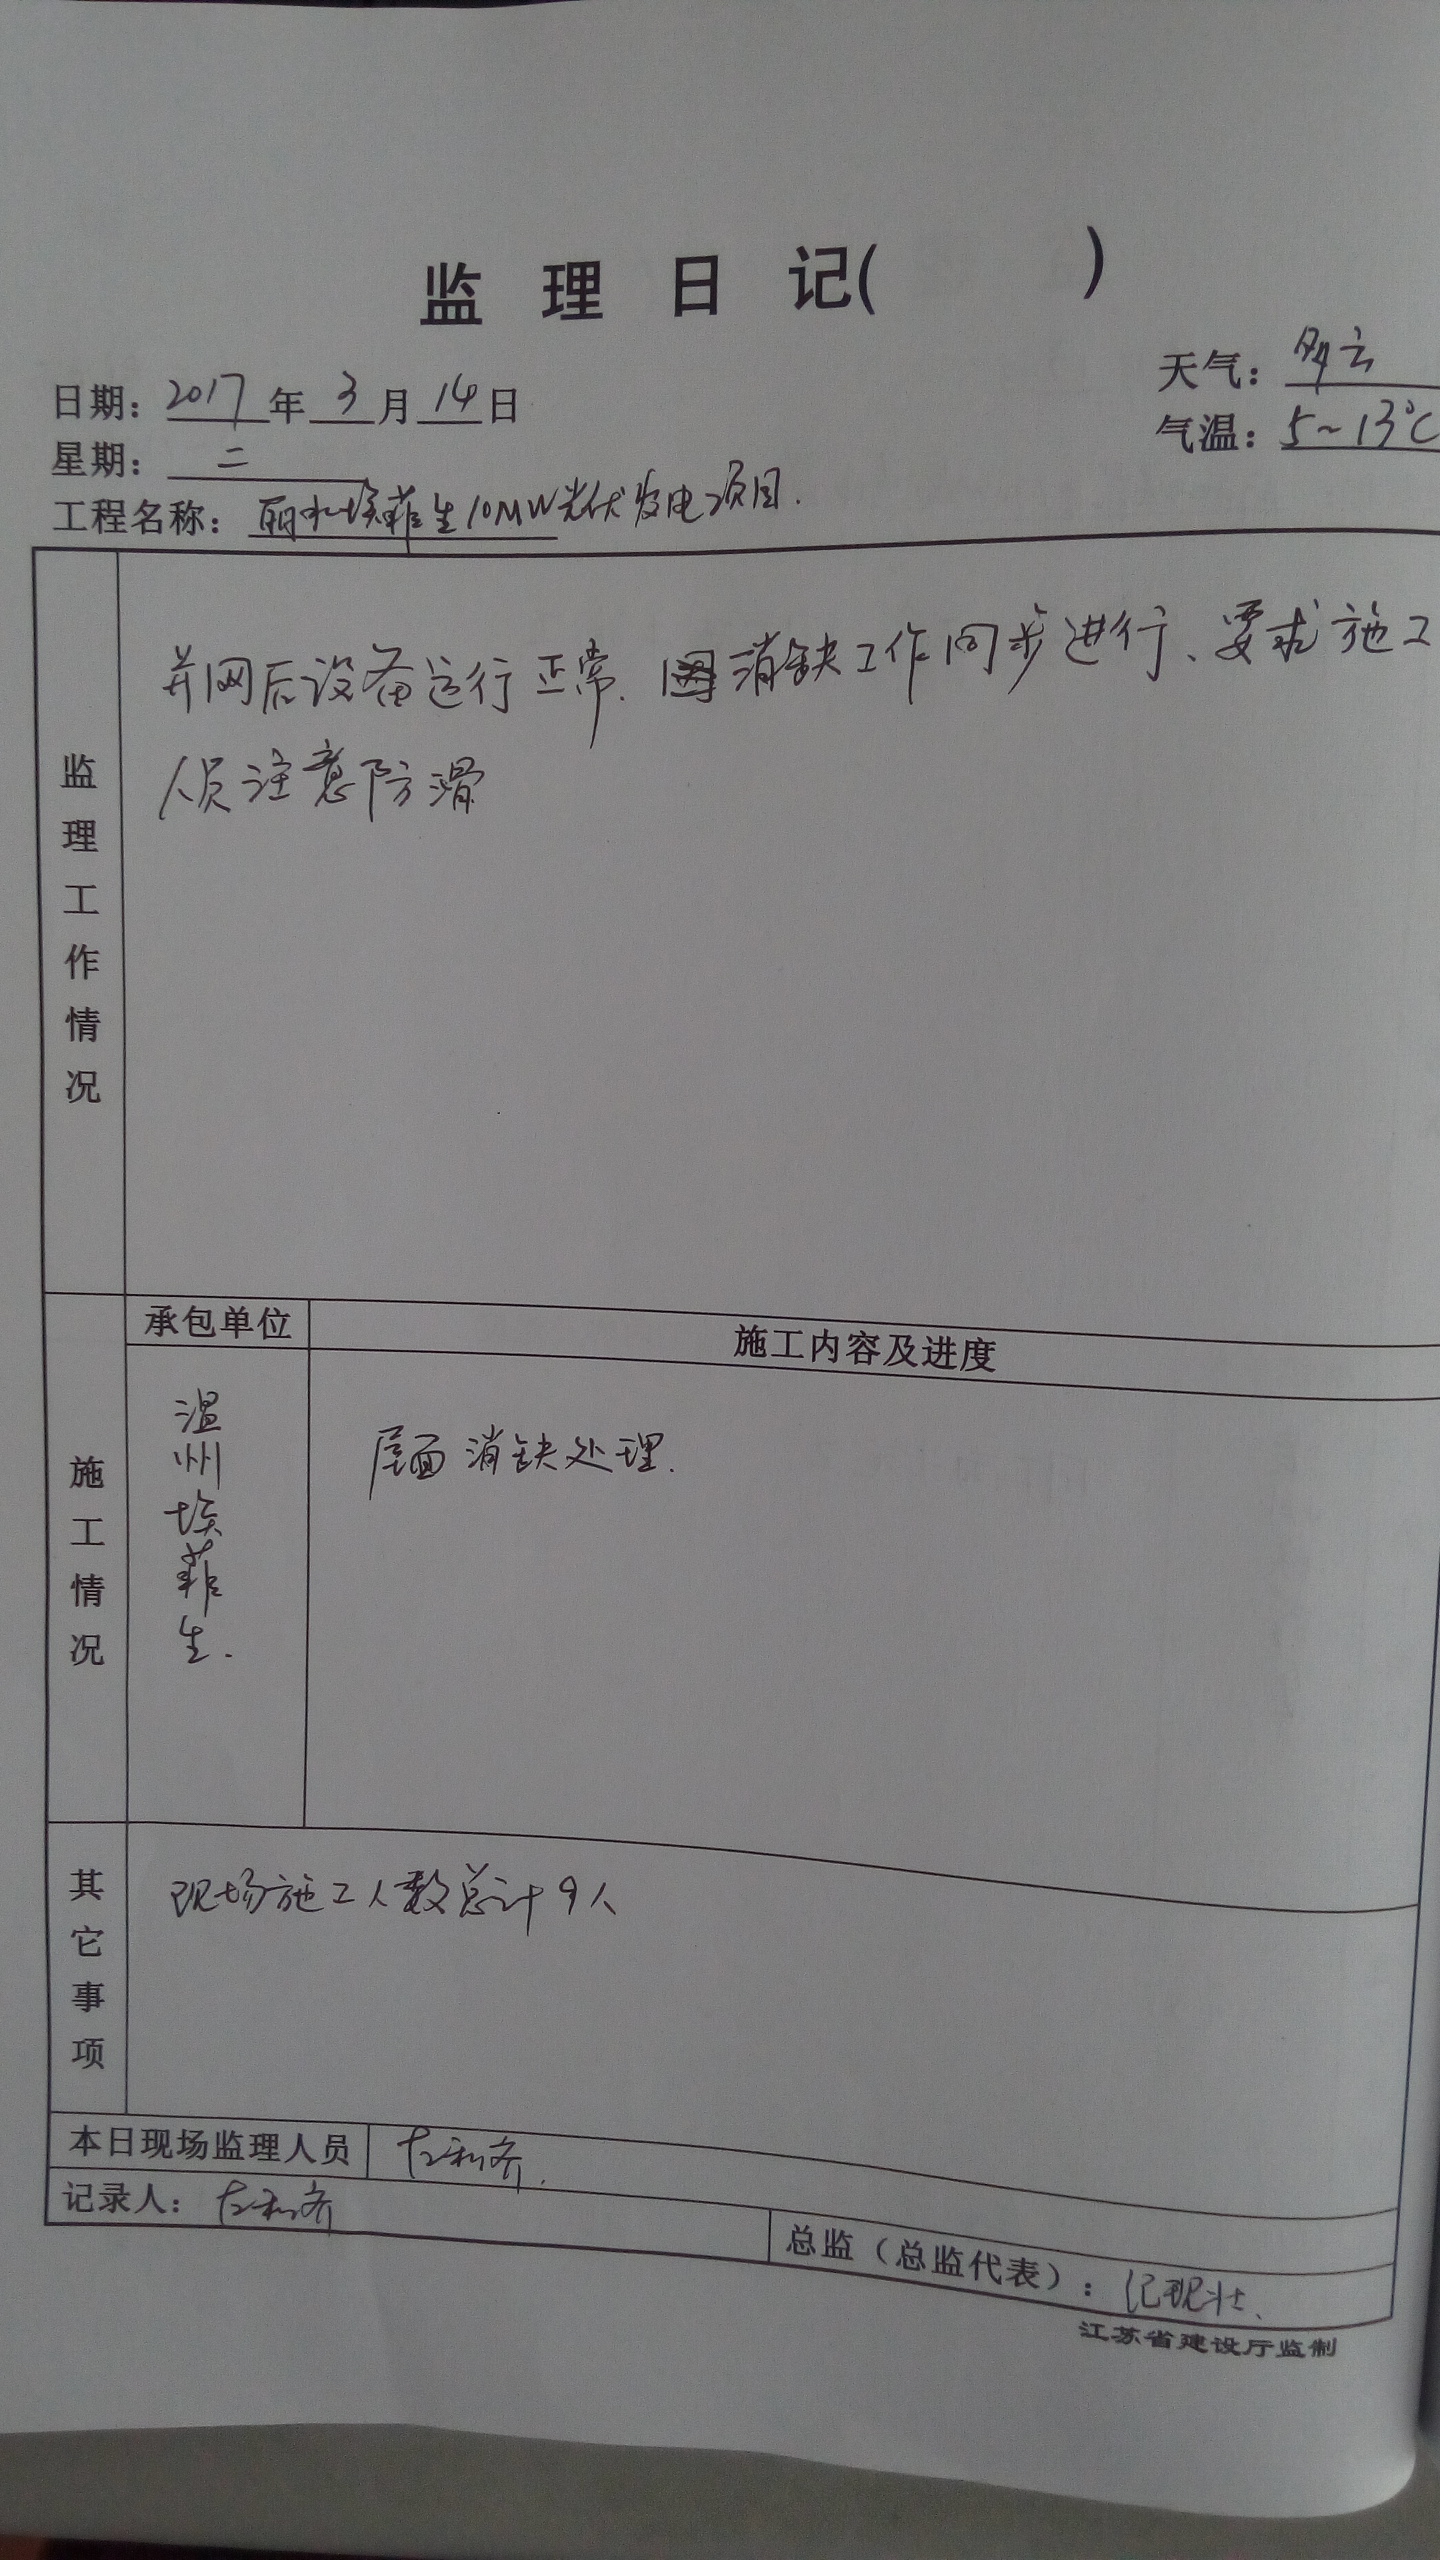 监理日记( )
天气：多云
日期：2017年3月14日
气温：5~13℃
星期：二
工程名称：丽水埃菲生10MW光伏发电项目.
监理工作情况
并网后设备运行正常.消缺工作同步进行、要求施工
人员注意防滑
施工情况
承包单位
施工内容及进度
温州埃菲生.
屋面消缺处理.
其它事项
现场施工人数总计9人
本日现场监理人员
记录人：
总监（总监代表）：
江苏省建设厅监制